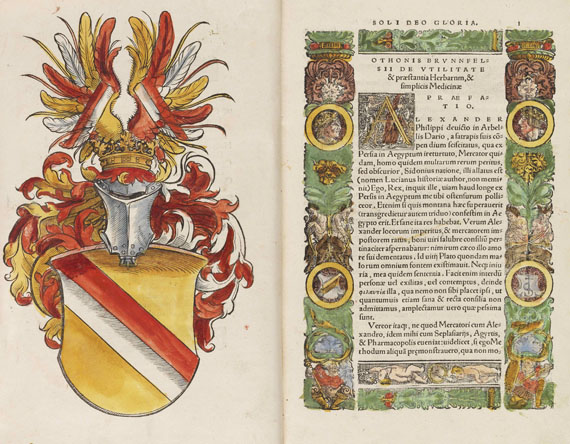 SOLI DEO GLORIA. 1
OTHONIS BRVNNFEL-
SII DE VTILITATE
& præstantia Herbarum, &
simplicis Medicinæ
PRÆFA-
TIO.
ALEXANDER
Philippi deuicto in Arbel-
lis Dario, a satrapis suis cō-
pendium sciscitatus, qua ex
Persia in Aegyptum iretur tuto, Mercator qui-
dam, homo quidem multarum rerum peritus,
sed obscurior, Sidonius natione, illi allatus est
(nomen Lucianus historiæ author, non memi-
nit) Ego, Rex, inquit ille, uiam haud longe ex
Persis in Aegyptum me tibi ostensurum pollí-
ceor, Etenim si quis montana hæc superauerit
(transgredietur autem triduo) confestim in Ae-
gypto erit. Et sane ita res habebat. Verum Alex-
ander locorum imperitus, & mercatorem im-
postorem ratus, boni uiri salubre consiliū per-
tinaciter aspernabatur: nimirum ex illo imma-
ne sui dementatus. Id uitij Plato quondam ma-
lorum omnium fontem existimauit. Neq; iniu-
ria, mea quidem sententia. Facit enim interdū
personæ uel exilitas, uel contemptus, deinde
illa, qua nemo non sibi placet ipsi, ut
quantumuis etiam sana & recta consilia non
admittamus, amplectamur uero quæ pessima
sunt.
Vereor itaq;, ne quod Mercatori cum Ale-
xandro, idem mihi cum Seplasiarijs, Agyrtis,
& Pharmacopolis eueniat: uidelicet, si ego Me-
thodum aliquā premonstrauero, qua non mo-